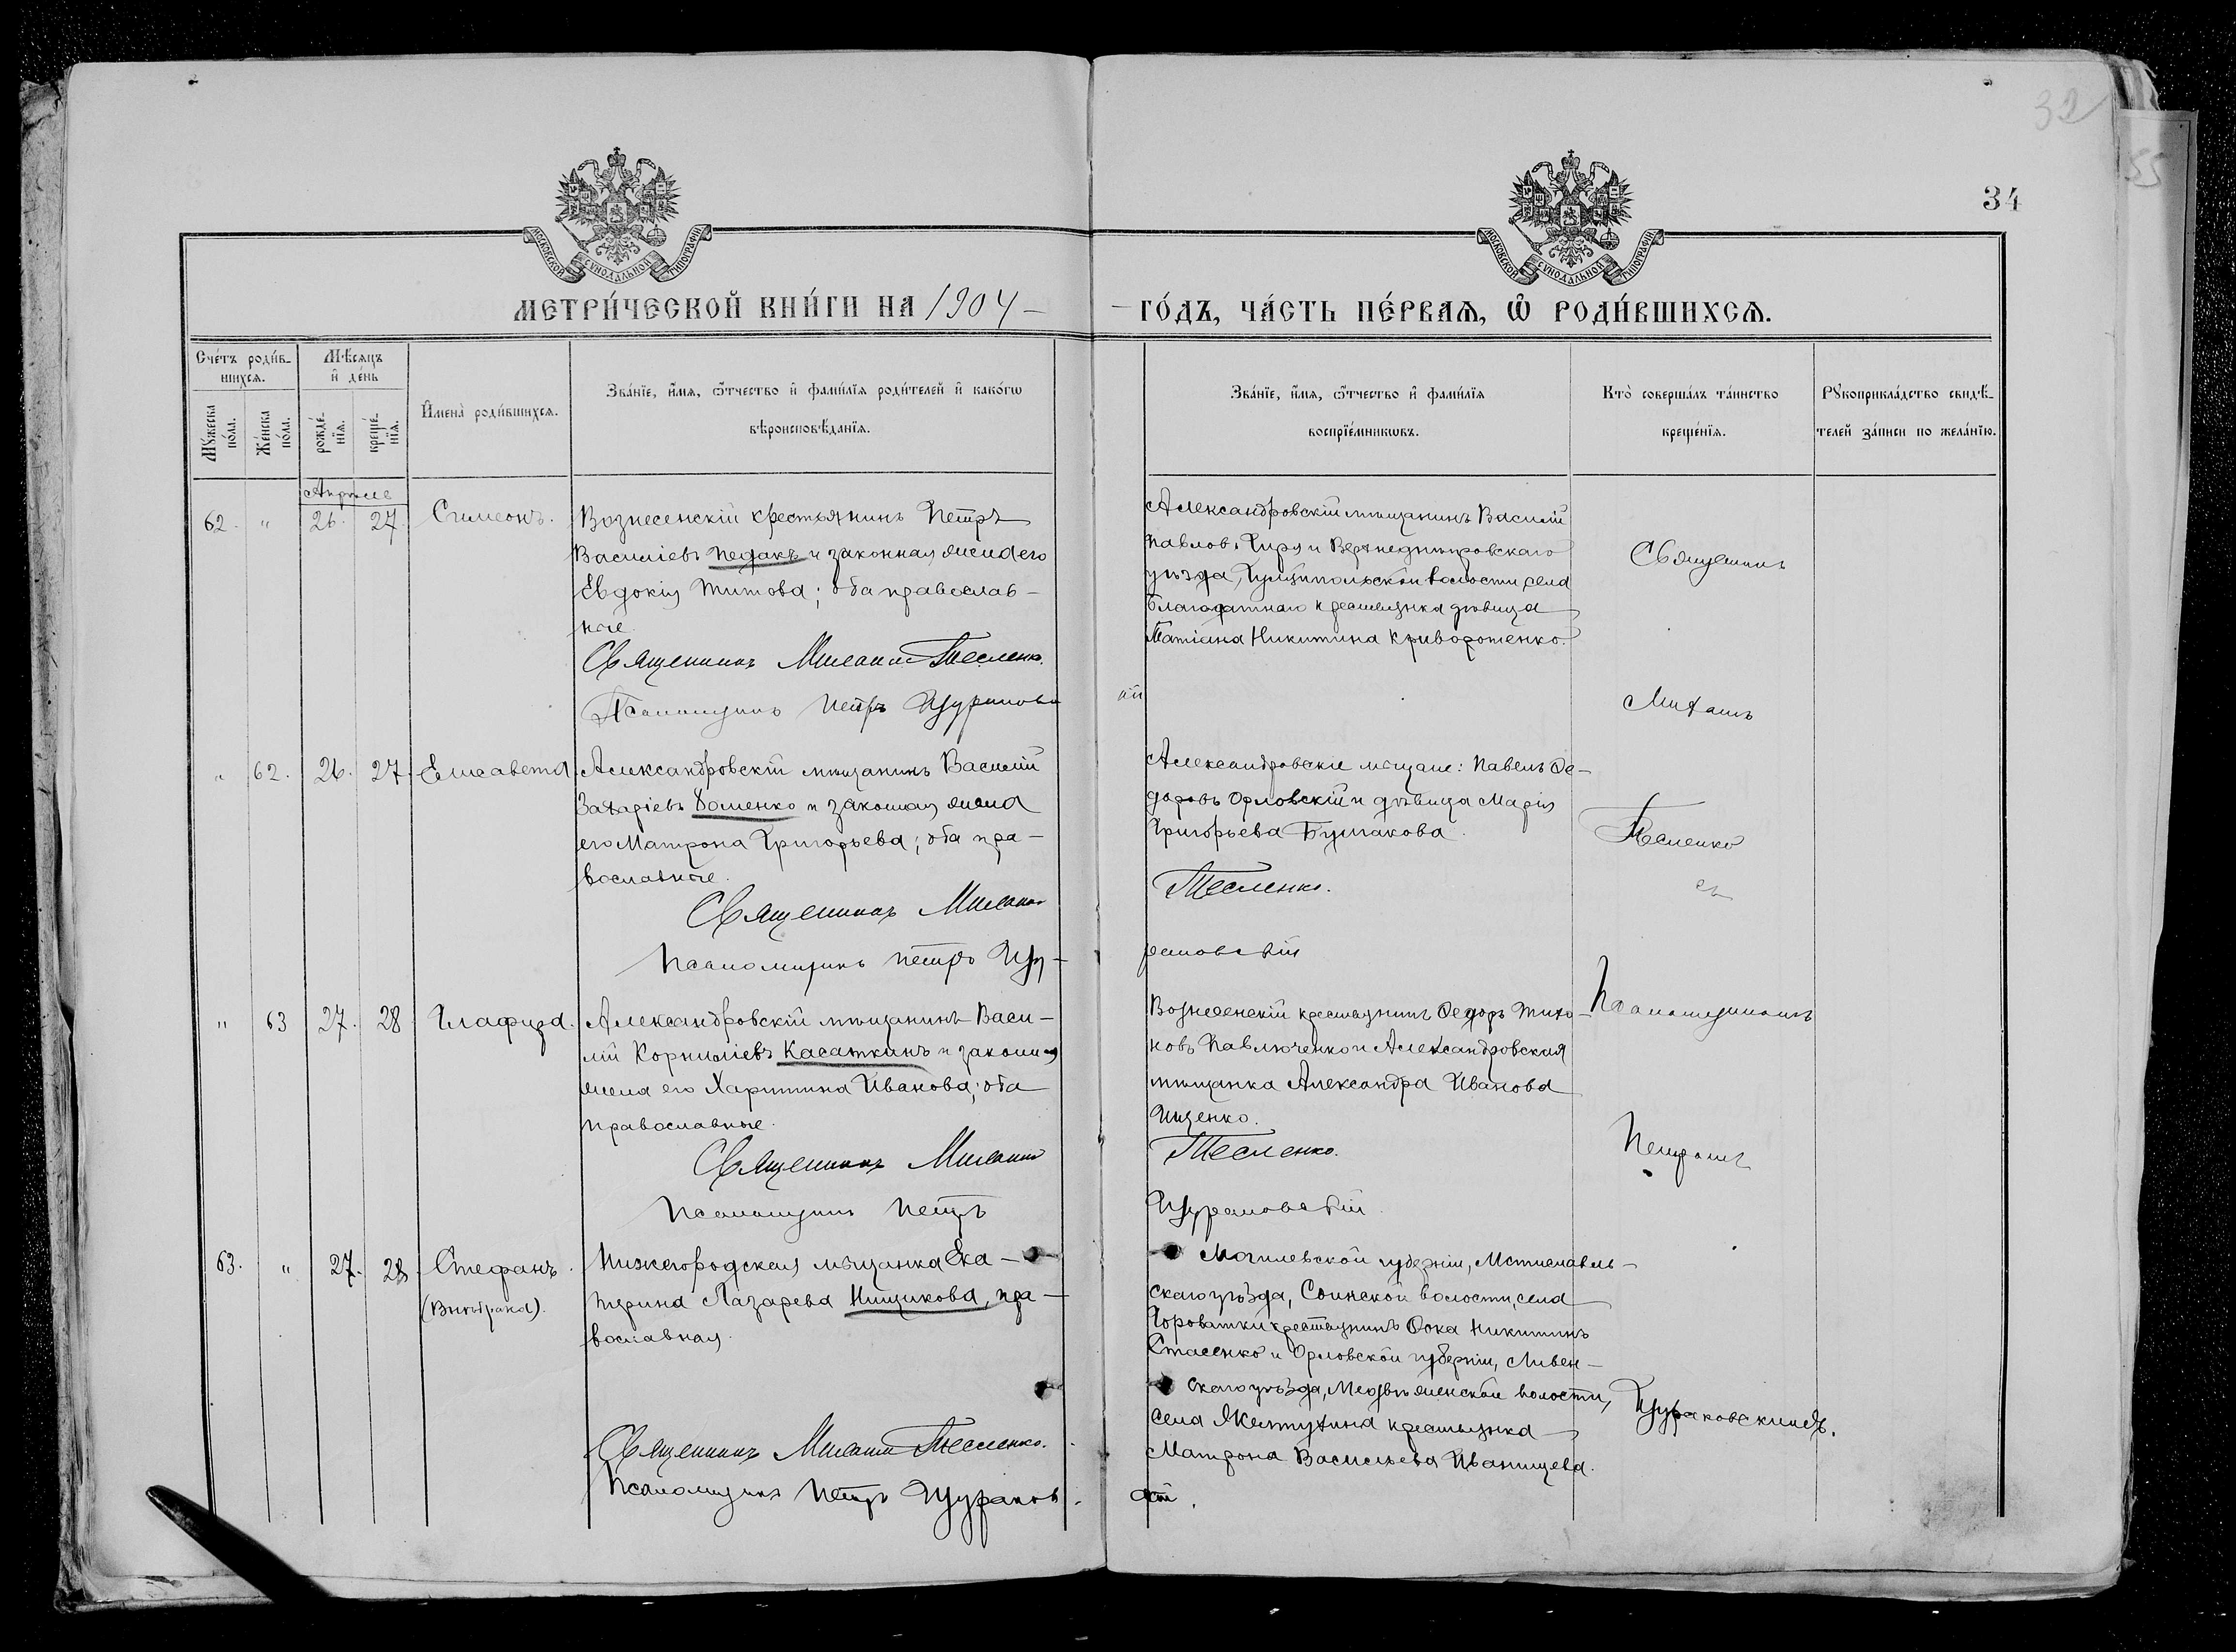 32
55
34
МОСКОВСКОЙ СѴНОДАЛЬНОЙ ТИПОГРАФІИ
МОСКОВСКОЙ СѴНОДАЛЬНОЙ ТИПОГРАФІИ
МЕТРИ́ЧЕСКОЙ КНИ́ГИ НА 1904 –
– ГО́ДЪ, ЧА́СТЬ ПЕ́РВАѦ, Ѽ РОДИ́ВШИХСѦ.
Сче́тъ роди́в-
шихсѧ.
Мѣ́сяцъ
и҆ де́нь
Мꙋ́жеска
по́ла.
Же́нска
по́ла.
рожде́-
нїѧ.
креще́-
нїѧ.
И҆мена̀ роди́вшихсѧ.
Зва́нїе, и҆́мѧ, ѻ҆́тчество и҆ фами́лїѧ роди́телей и҆ како́гѡ
вѣроисповѣ́данїѧ.
Зва́нїе, и҆́мѧ, ѻ҆́тчество и҆ фами́лїѧ
воспрїе́мникѡвъ.
Кто̀ соверша́лъ та́инство
креще́нїѧ.
Рꙋкоприкла́дство свидѣ́-
телей за́писи по жела́нїю.
Апрѣль
62. " 26. 27. Симеонъ.
Вознесенскій крестьянинъ Петръ
Василіевъ Педакъ и законная жена его
Евдокія Титова; оба православ-
ные.
Священникъ Михаилъ Тесленко.
Псаломщикъ Петръ Щураковс
кій
Александровскій мѣщанинъ Василій
Павловъ Гиря и Верхнеднѣпровскаго
уѣзда, волости, села
Благодатнаго крестьянка дѣвица
Татіана Никитина Криворотенко.
Священникъ
Михаилъ
" 62. 26. 27. Елисавета.
Александровскій мѣщанинъ Василій
Захаріевъ Доменко и законная жена
его Матрона Григорьева; оба пра-
вославные.
Священникъ Михаилъ
Псаломщикъ Петръ Щу-
Александровскіе мѣщане: Павелъ Ѳе-
доровъ Орловскій и дѣвица Марія
Григорьева Булгакова.
Тесленко.
раковскій
Тесленко
съ
" 63 27. 28 Глафира.
Александровскій мѣщанинъ Васи-
лій Корниліевъ Касаткинъ и законная
жена его Харитина Иванова; оба
православные.
Священникъ Михаилъ
Псаломщикъ Петръ
Вознесенскій крестьянинъ Ѳедоръ Тихо-
новъ Павлюченко и Александровская
мѣщанка Александра Иванова
Ищенко.
Тесленко.
Щураковскій.
Псаломщикомъ
Петромъ
63. " 27. 28 Стефанъ.
(Внѣбрака).
Нижегородская мѣщанка Ека-
терина Лазарева Нищикова, пра-
вославная.
Священникъ Михаилъ Тесленко.
Псаломщикъ Петръ Щураков-
скій.
Могилевской губерніи, Мстиславль-
скаго уѣзда, Соинской волости, села
Городатки крестьянинъ Ѳока Никитинъ
Стасенко и Орловской губерніи, Ливен-
скаго уѣзда, волости,
села крестьянка
Матрона Васильева Иванищева.
Щураковскимъ.